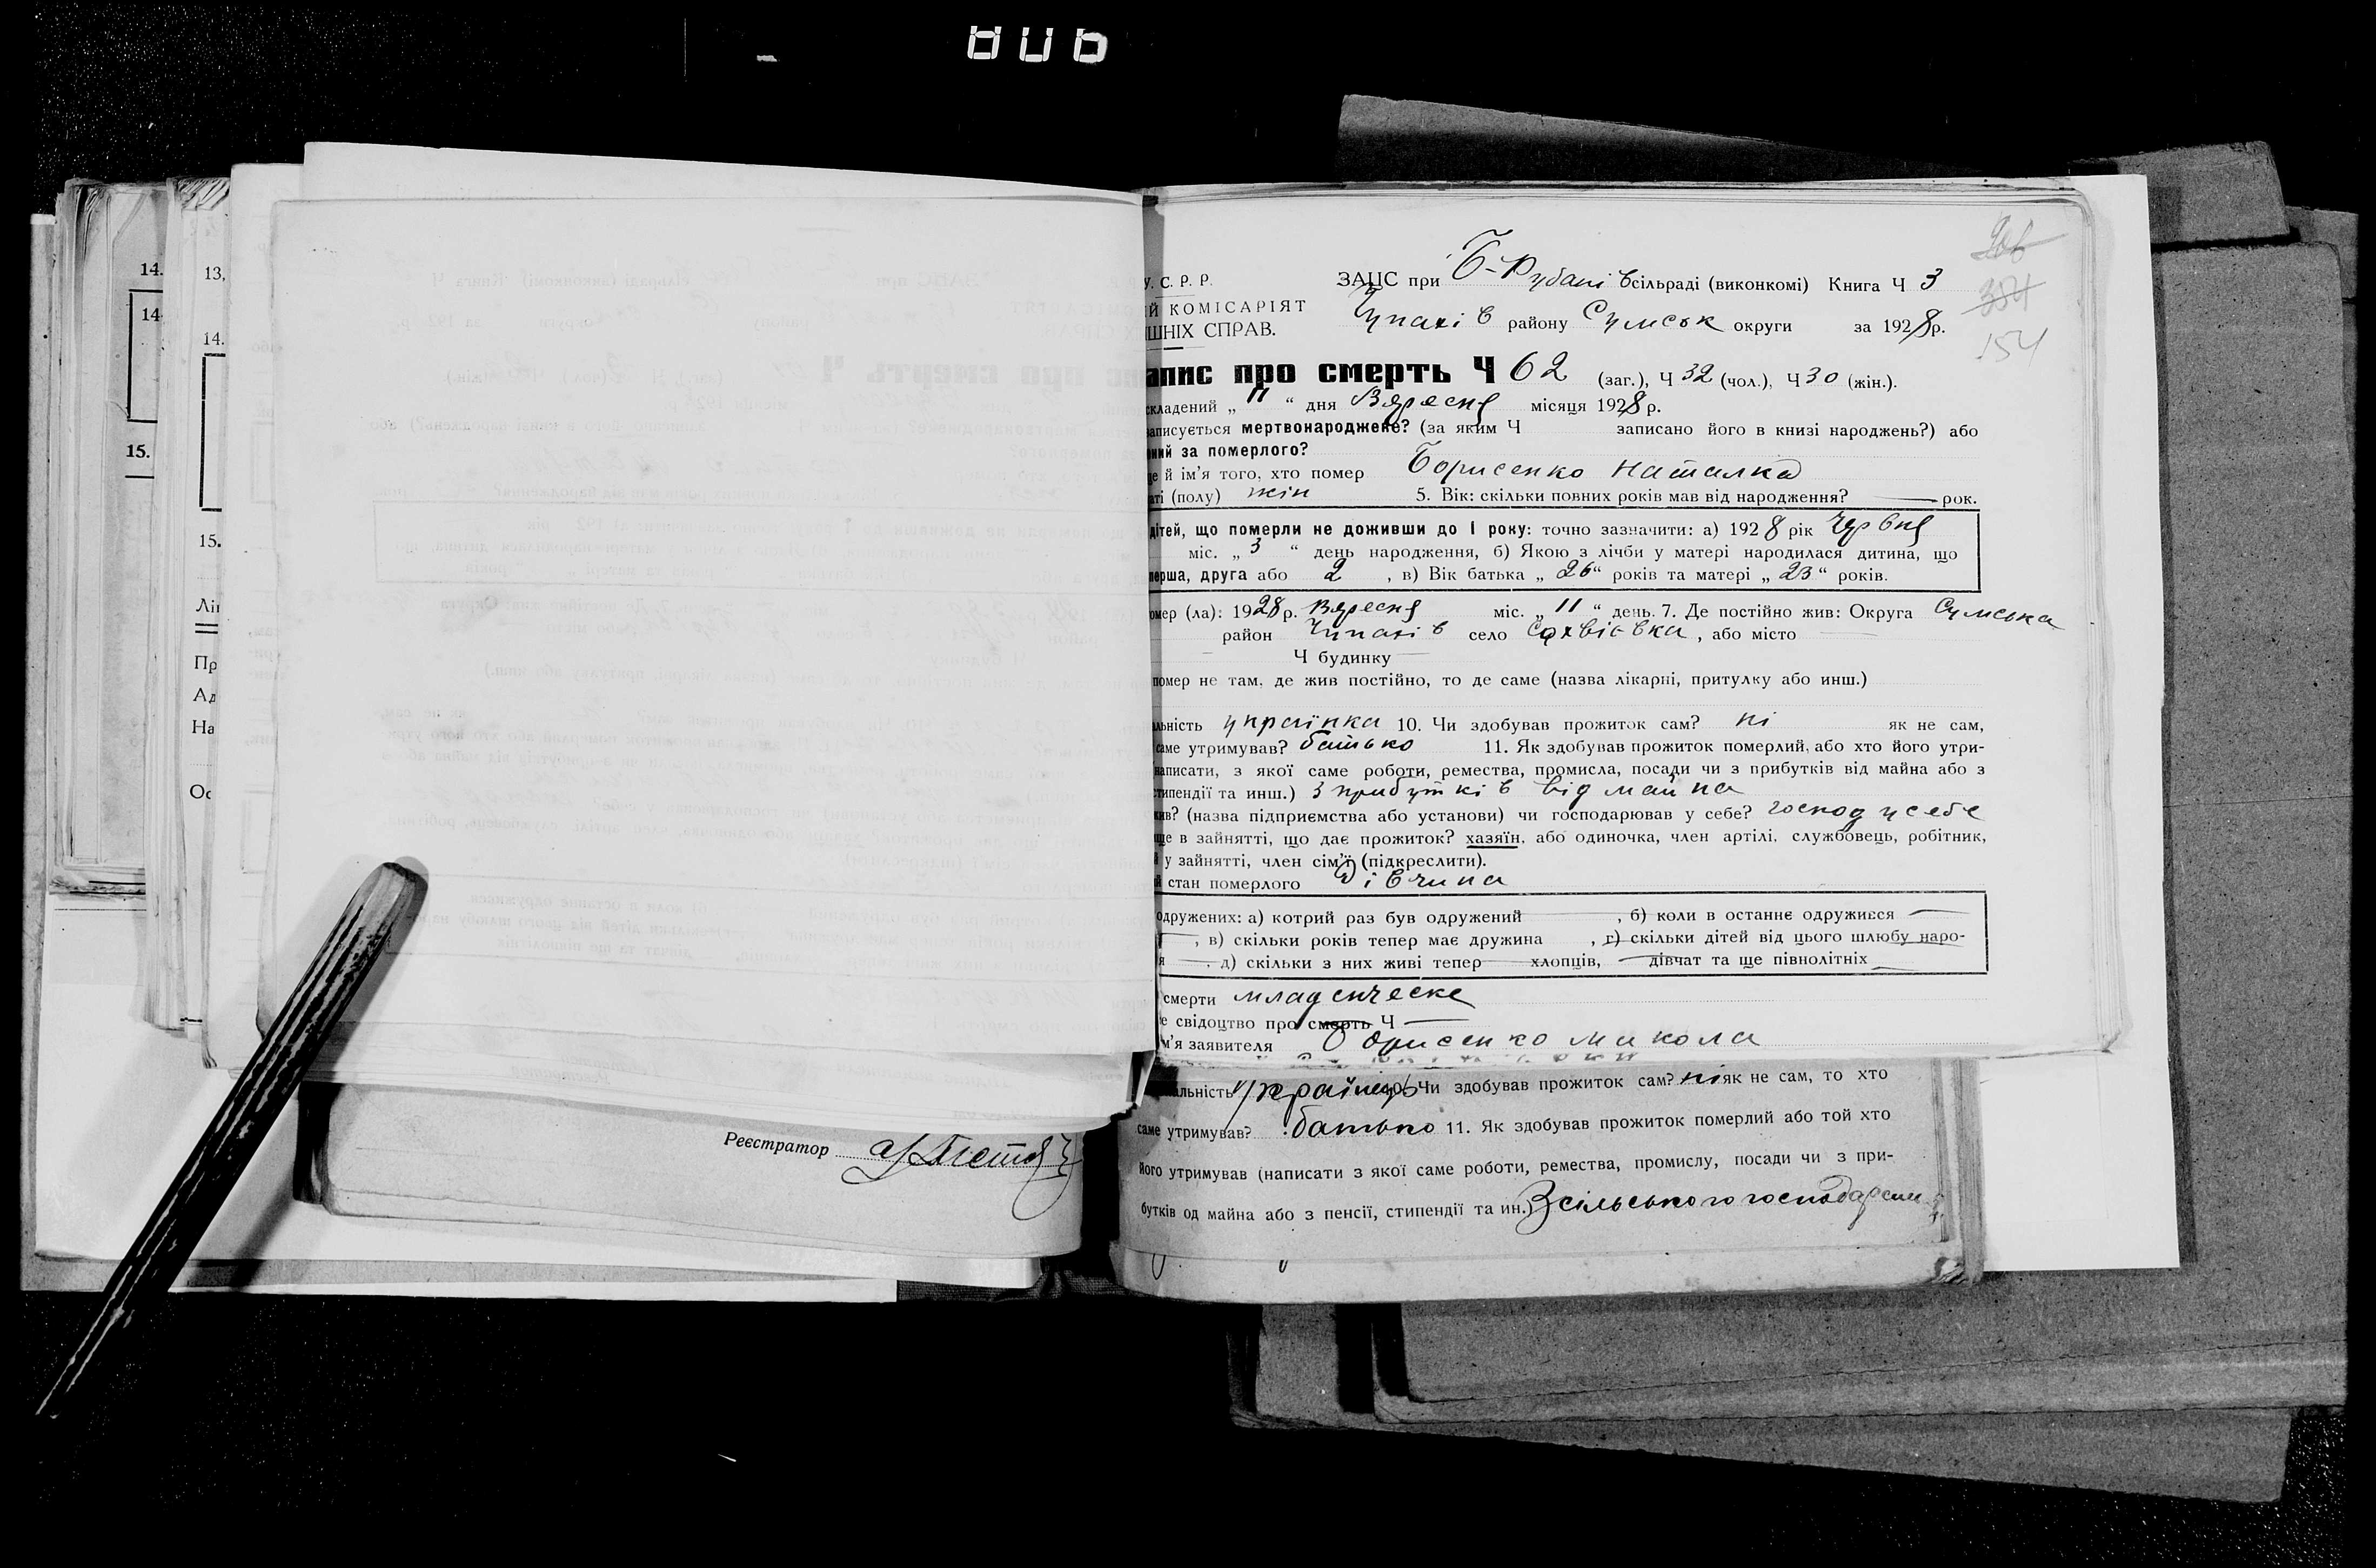 806
14.
14
15.
13,
14.
15.
Лі
Пр
Ад
На
Ос
206
354
154
У. С. Р. Р.
ЗАЦС при Б-Рубанівсільраді (виконкомі) Книга Ч 3
Й КОМІСАРІЯТ
ШНІХ СПРАВ.
Чупахів району Сумськ округи за 1928р.
апис про смерть Ч 62 (заг.), Ч 32 (чол.), Ч 30 (жін.).
складений „ 11 “ дня Вересня місяця 1928 р.
записується мертвонароджене? (за яким Ч записано його в книзі народжень?) або
ний за померлого?
е й ім’я того, хто помер Борисенко Наталка
аті (полу) жін 5. Вік: скільки повних років мав від народження? — рок.
дітей, що померли не доживши до 1 року: точно зазначити: а) 1928 рік Червня
міс. „ 3 “ день народження, б) Якою з лічби у матері народилася дитина, що
перша, друга або 2 , в) Вік батька „ 26 “ років та матері „ 23 “ років.
омер (ла): 1928 р. Вересня міс. „ 11 “ день. 7. Де постійно жив: Округа Сумська
район Чупахів село , або місто —
Ч будинку —
помер не там, де жив постійно, то де саме (назва лікарні, притулку або инш.)
льність українка 10. Чи здобував прожиток сам? ні як не сам,
саме утримував? батько 11. Як здобував прожиток померлий, або хто його утри-
написати, з якої саме роботи, ремества, промисла, посади чи з прибутків від майна або з
типендії та инш.) З прибутків від майна
жив? (назва підприємства або установи) чи господарював у себе? господ у себе
ще в зайнятті, що дає прожиток? хазяїн, або одиночка, член артілі, службовець, робітник,
й у зайнятті, член сім’ї (підкреслити).
й стан померлого Дівчина
одружених: а) котрий раз був одружений — , б) коли в останнє одружився —
— , в) скільки років тепер має дружина , г) скільки дітей від цього шлюбу наро-
я — , д) скільки з них живі тепер — хлопців, — дівчат та ще півнолітніх —
смерти младенческе
е свідоцтво про смерть Ч —
м’я заявителя Борисенко Микола
альність українець Чи здобував прожиток сам? ні як не сам, то хто
саме утримував? батько 11. Як здобував прожиток померлий або той хто
його утримував (написати з якої саме роботи, ремества, промислу, посади чи з при-
бутків од майна або з пенсії, стипендії та ин.) З сільського господарст
Реєстратор